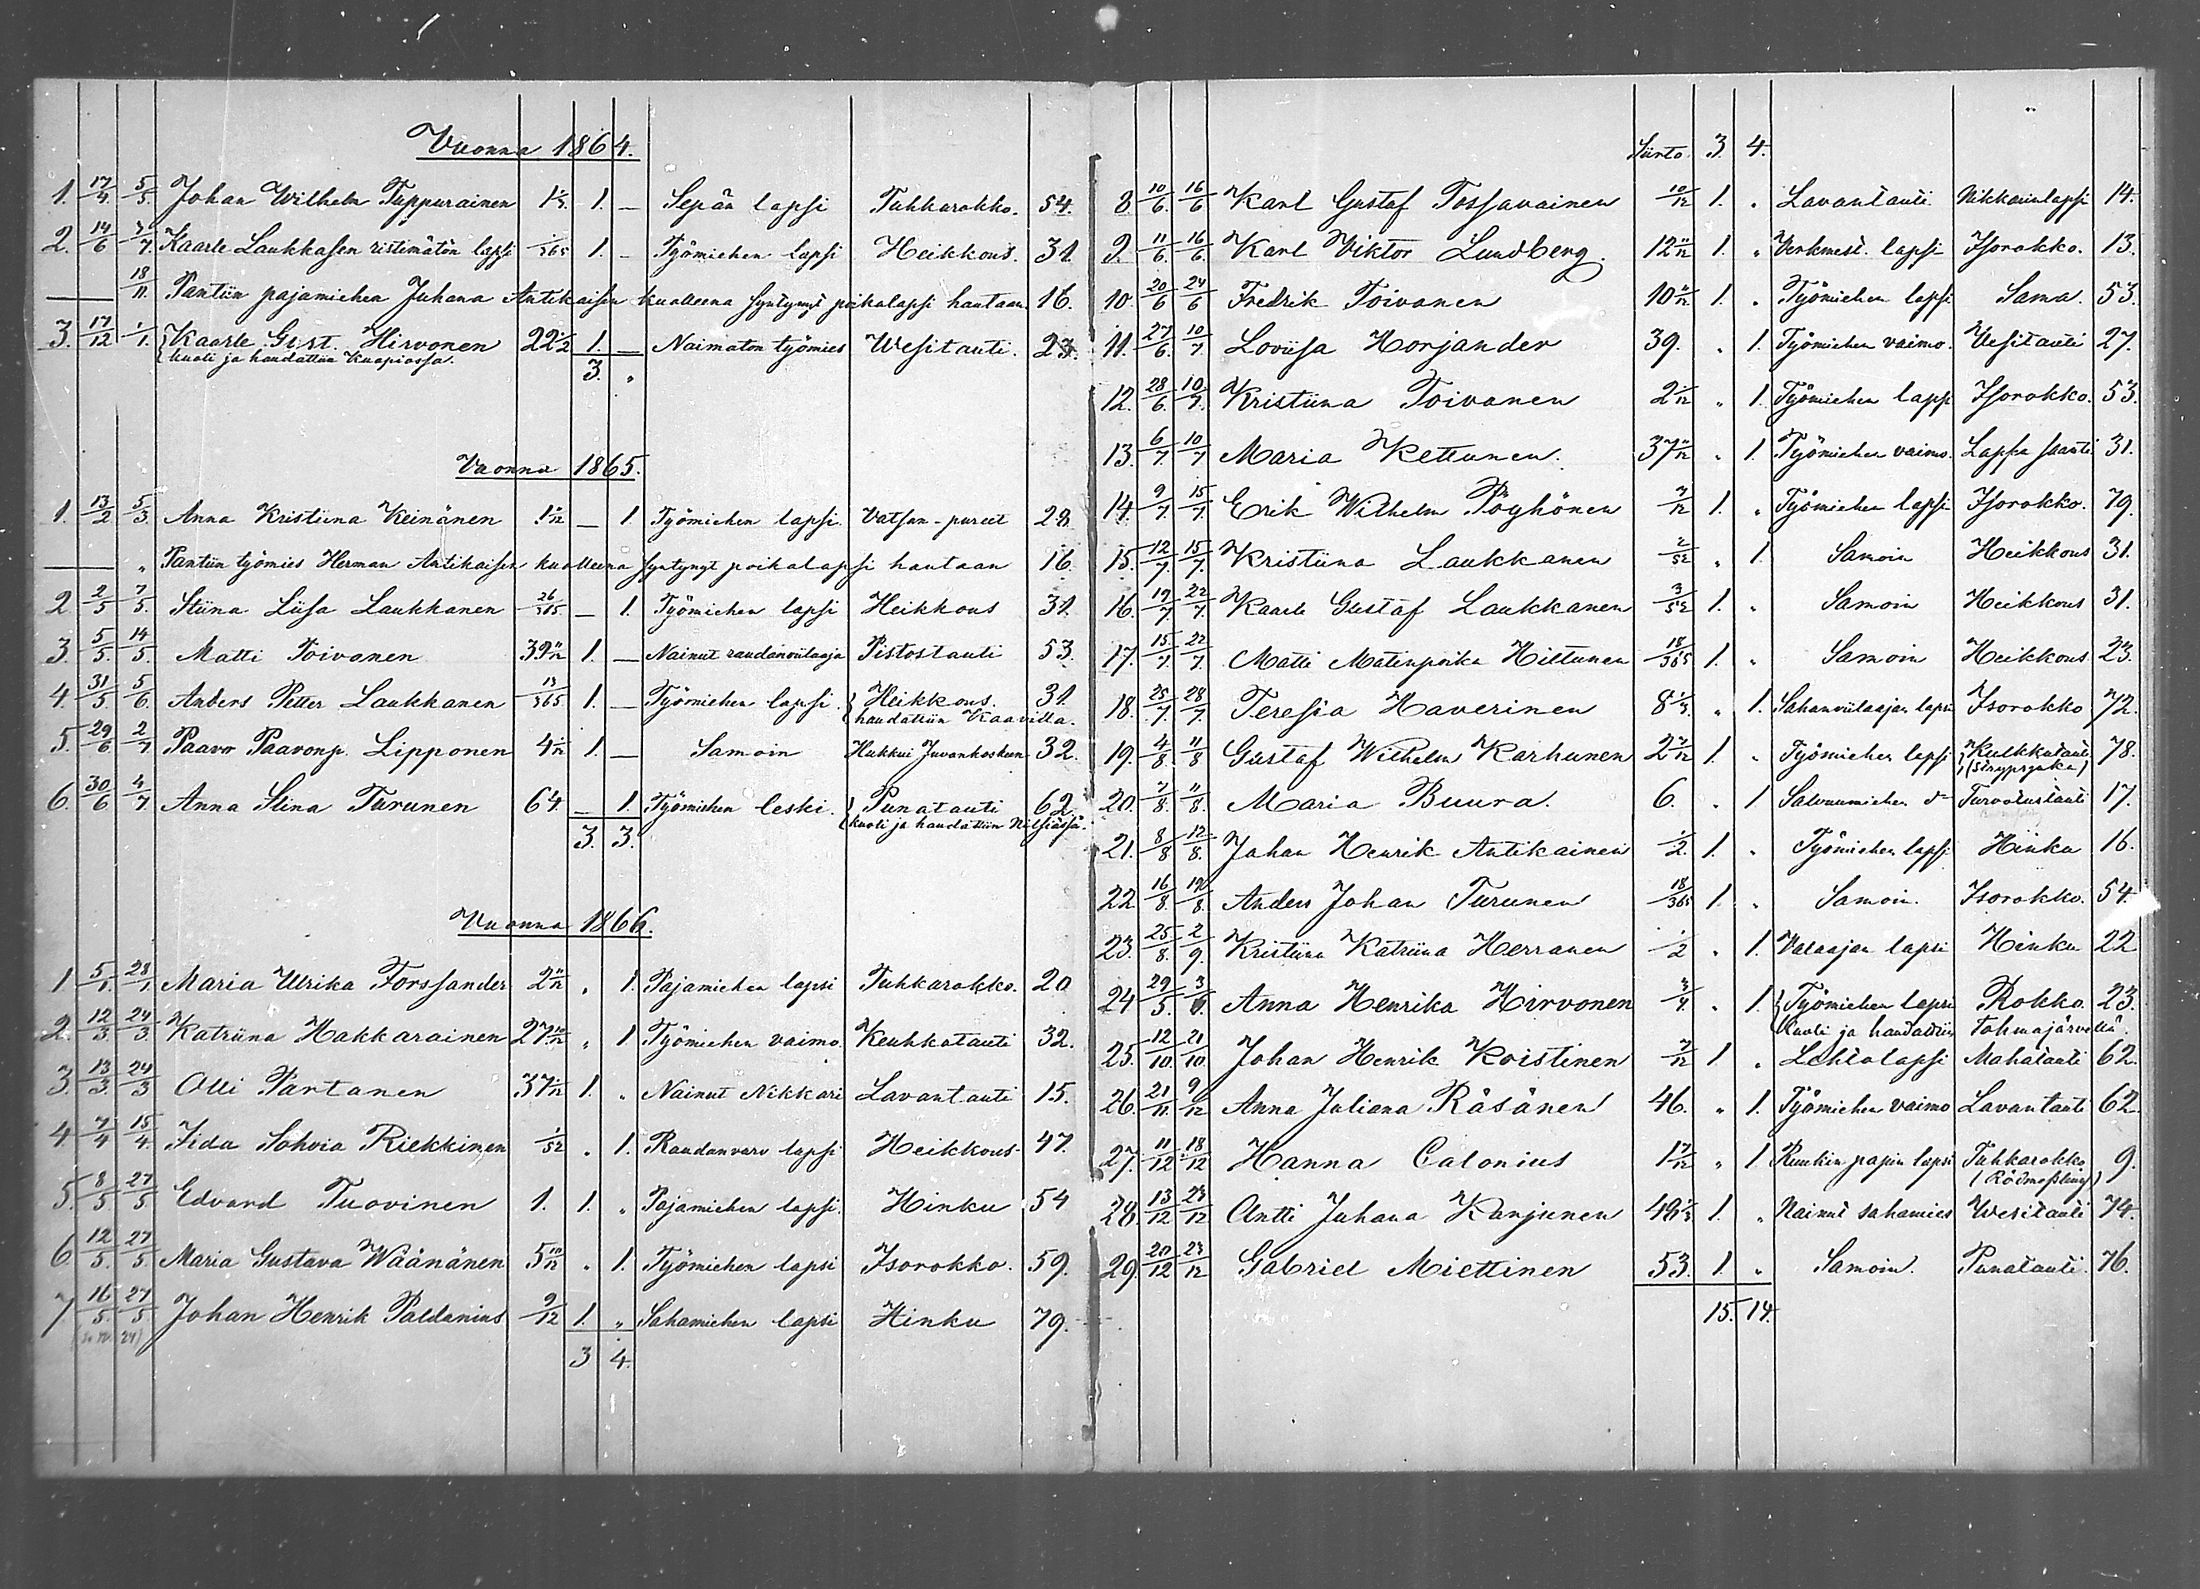 Vuonna 1864.
1. 17/4. 5/5. Johan Wilhelm Tuppurainen 1 1/3. 1. — Sepän lapsi Tuhkarokko. 54.
2. 14/6 7/7. Kaarle Laukkasen ristimätön lapsi 1/365 1. — Työmiehen lapsi Heikkous. 31.
— 18/11. Pantiin pajamiehen Juhana Antikaisen kuolleena syntynyt poikalapsi hautaan 16.
3. 17/12 1/1. Kaarle Gust. Hirvonen 22 1/2 1. — Naimaton työmies Wesitauti. 23.
kuoli ja haudattiin Kuopiossa.
3. "
Vuonna 1865.
1. 13/2 5/3. Anna Kristiina Keinänen — 1. Työmiehen lapsi. Vatsan-pureet 29.
— " Pantiin työmies Herman Antikaisen kuolleena syntynyt poikalapsi hautaan 16.
2 2/5 7/5. Stiina Liisa Laukkanen 26/365 — 1. Työmiehen lapsi Heikkous 31.
3. 5/5. 14/5. Matti Toivonen 39 1. — Nainut raudanviilaaja Pistostauti 53.
4. 31/5 5/6. Anders Petter Laukkanen 13/365 1. — Työmiehen lapsi. Heikkous. 31.
haudattiin Kaavilla.
5. 29/6 2/7 Paavo Paavonp. Lipponen 4 1. — Samoin Hukkui Juvankoskeen 32.
6. 30/6 4/7 Anna Stina Turunen 64. — 1. Työmiehen leski. Punatauti 62.
kuoli ja haudattiin Nilsiässä.
3. 3.
Vuonna 1866.
1 5/1. 28/1 Maria Ulrika Forssander 2 " 1. Pajamiehen lapsi Tuhkarokko. 20
2. 12/3. 24/3. Katriina Hakkarainen 27 10/12 " 1 Työmiehen vaimo. Keuhkotauti 32.
3. 13/3. 24/3 Olli Partanen 37 1. " Nainut Nikkari Lavantauti 15.
4 7/4 15/4. Iida Sohvia Riekkinen 1/52 " 1. Raudanvarv lapsi Heikkous 47.
5. 8/5 27/5. Edvard Tuovinen 1. 1. " Pajamiehen lapsi. Hinku 54
6 12/5. 27/5. Maria Gustava Wäänänen 5 10/12 " 1. Työmiehen lapsi Isorokko. 59.
7 16/5. 27/5 Johan Henrik Paldanius 9/12 1. " Sahamiehen lapsi Hinku 79.
3 4.
Siirto. 3. 4.
8 10/6. 16/6 Karl Gustaf Tossavainen 10/12 1. " Lavantauti. Nikkarinlapsi 14.
9. 11/6. 16/6. Karl Viktor Lundberg. 12 1. " Verkmest. lapsi Isorokko. 13.
10. 20/6 24/6 Fredrik Toivonen 10 1. " Työmiehen lapsi Sama. 53.
11. 27/6. 10/7 Loviisa Horjander 39. " 1. Työmiehen vaimo. Vesitauti 27.
12. 28/6. 10/7. Kristiina Toivonen 2 " 1. Työmiehen lapsi Isorokko. 53.
13. 6/7 10/7 Maria Kettunen. 37 " 1. Työmiehen vaimo. Lapsen saanti 31.
14. 9/7 15/7. Erik Wilhelm Pöyhönen 7/12 1. " Työmiehen lapsi Isorokko. 79.
15. 12/7 15/7. Kristiina Laukkanen 2/52 " 1. Samoin Heikkous 31.
16. 19/7 22/7. Kaarle Gustaf Laukkanen 3/52 1. " Samoin Heikkous 31.
17. 15/7. 22/7. Matti Matinpoika Hiltunen 18/365 1. " Samoin Heikkous 23.
18. 25/7. 28/7. Teresia Haverinen 8 1/3. " 1. Sahanviilaajan lapsi Isorokko 72.
19. 4/8. 11/8 Gustaf Wilhelm Karhunen 2 1. " Työmiehen lapsi Kulkkutauti 78.
(Strypsjuka)
20. 7/8. 11/8. Maria Buura. 6. " 1 Salvumiehen Turvotustauti 17.
21. 8/8 12/8. Johan Henrik Antikainen 1/2. 1. " Työmiehen lapsi Hinku 16.
22 16/8. 19/8. Anders Johan Turunen 18/365 1. " Samoin. Isorokko. 54.
23. 25/8. 2/9. Kristiina Katriina Herranen 1/2 " 1. Valaajan lapsi Hinku 22
24 29/5. 3/6. Anna Henrika Hirvonen 3/4 " 1. Työmiehen lapsi Rokko. 23.
Kuoli ja haudattiin Tohmajärvellä.
25. 12/10. 21/10. Johan Henrik Koistinen 7/12 1. " Lehtolapsi Mahatauti 62.
26. 21/11. 9/12 Anna Juliana Räsänen 46. " 1. Työmiehen vaimo Lavantauti 62.
27. 11/12 18/12 Hanna Calonius 1 7/12 " 1 Ruukin papin lapsi Tuhkarokko 9.
(Rödmessling)
28. 13/12 23/12 Antti Juhana Karjunen 48 1/3 1. " Nainut sahamies Wesitauti 74.
29. 20/12 23/12 Gabriel Miettinen 53. 1. " Samoin. Punatauti. 76.
15. 14.